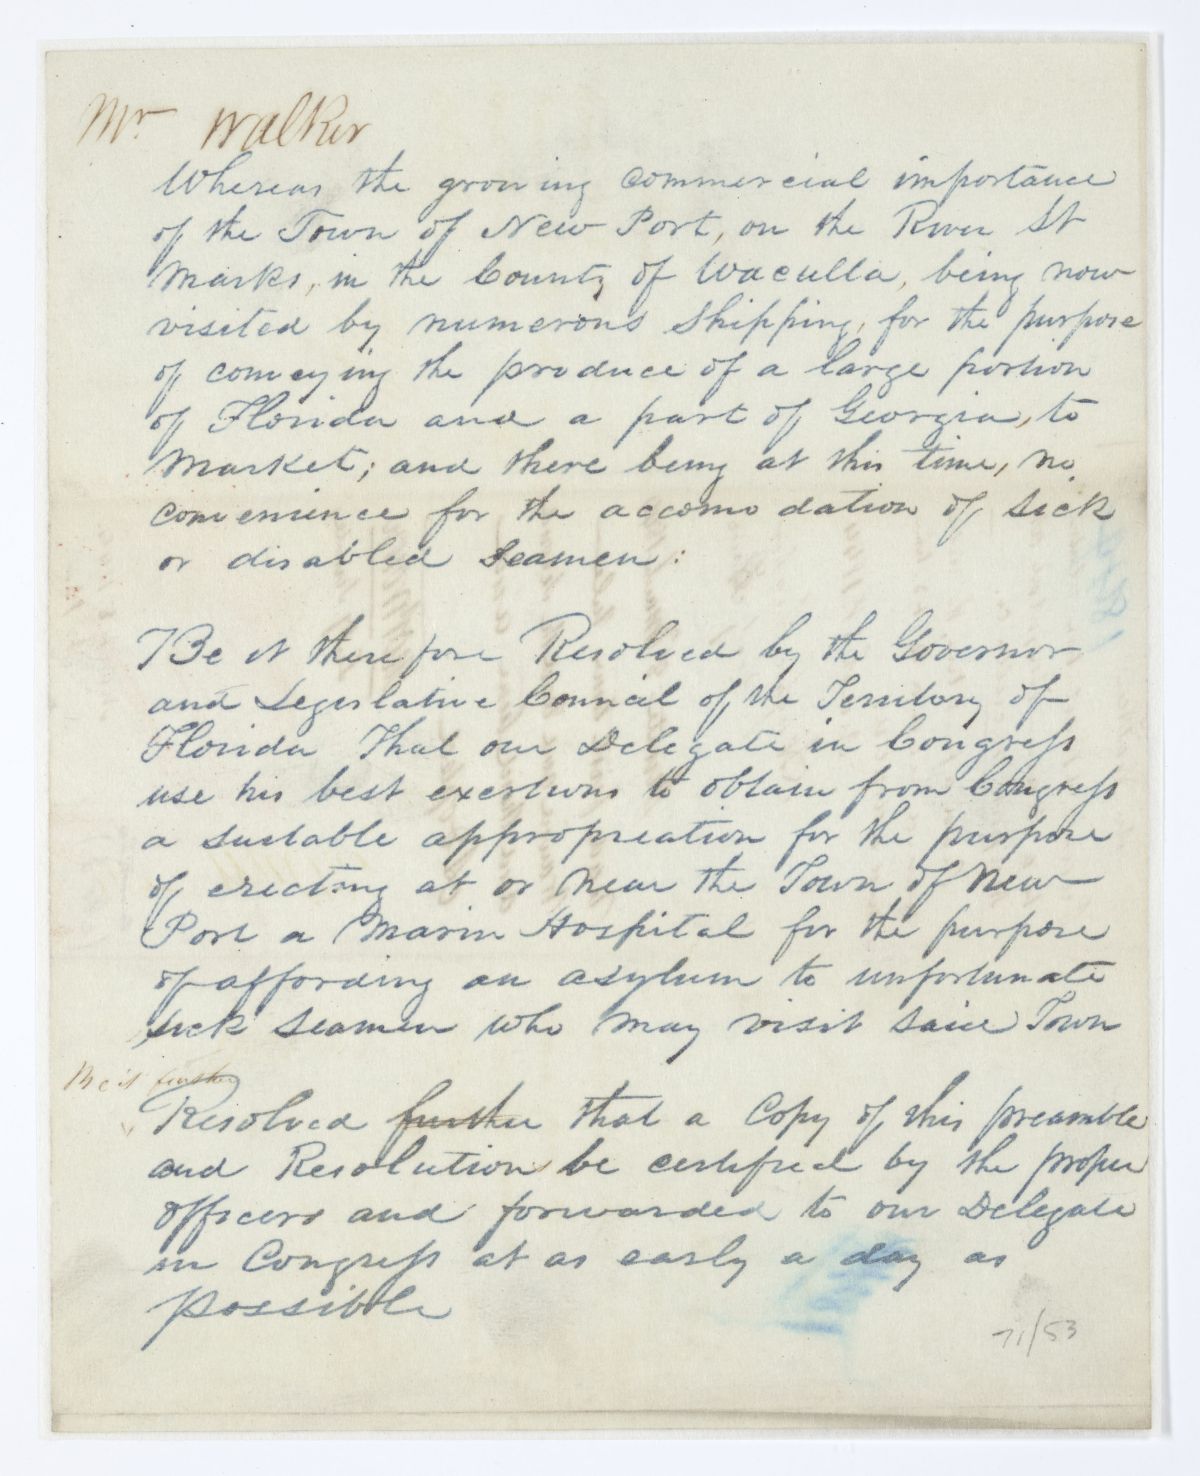 Mr Walker
Whereas the growing commercial importance
of the Town of New Port, on the River St
Marks, in the County of Waculla, being now
visited by numerous shipping, for the purpose
of conveying the produce of a large portion
of Florida and a part of Georgia, to
Market; and there being at this time, no
convenience for the accomodation of sick
or disabled Seamen:
Be it therefore Resolved by the Governor
and Legislative Council of the Territory of
Florida That our Delegate in Congress
use his best exertions to obtain from Congress
a suitable appropreation for the purpose
of erecting at or near the Town of New
Port a Marin Hospital for the purpose
of affording an asylum to unfortunate
sick seamen who may visit said Town
Be it further
Resolved further that a Copy of this preamble
and Resolution be certified by the proper
officers and forwarded to our Delegate
in Congress at as early a day as
possible
71/53